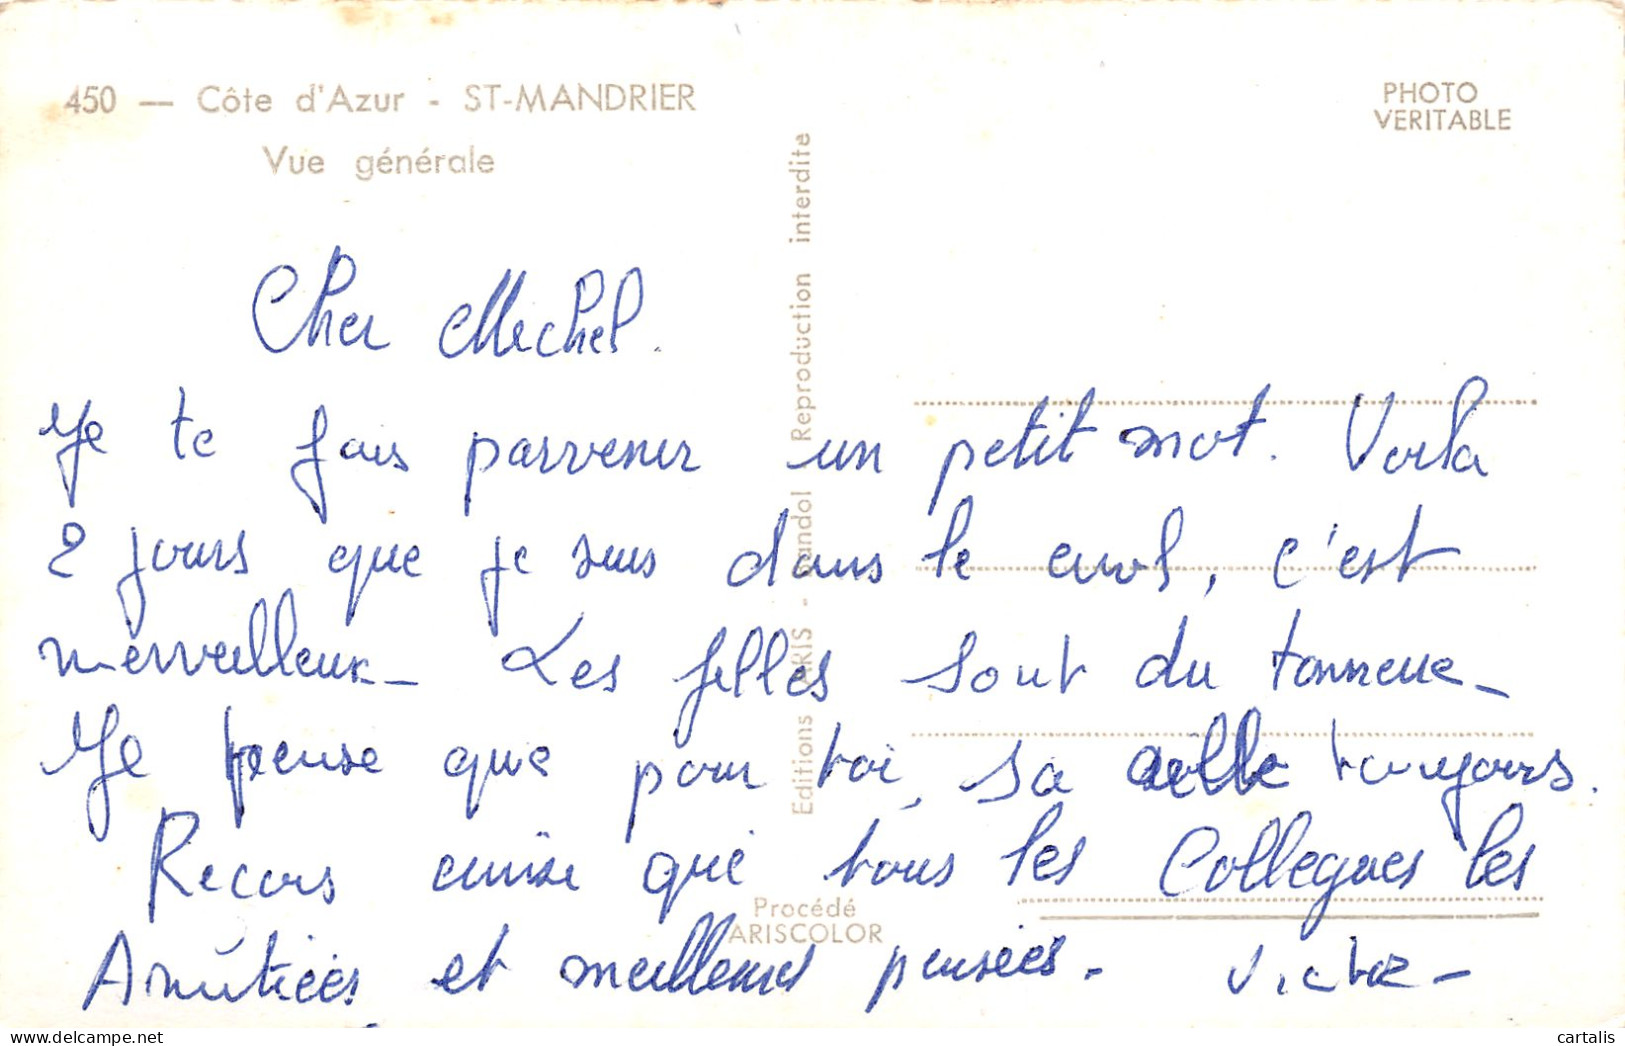 450 — Côte d'Azur - ST-MANDRIER
Vue générale
PHOTO
VERITABLE
Editions ARIS - Bandol Reproduction interdite
Cher Michel.
Je te fais parvenir un petit mot. Voila
2 jours que je suis dans le civil, c'est
merveilleux_ Les filles sont du tonnerre_
Je pense que pour toi, sa aille toujours.
Recois ainsi que tous les Collegues les
Amitiées et meilleures pensées.
Procédé
ARISCOLOR
cartalis